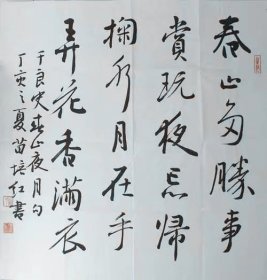 春山多胜事
赏玩夜忘归
掬水月在手
弄花香满衣
于良史春山夜月句
丁亥之夏苗培红书